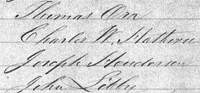 Thomas Orr
Charles W.
Joseph Henderson
John Libby